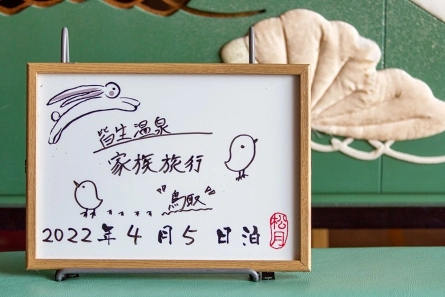 皆生温泉
家族旅行
"鳥取"
2022年4月5日泊
松月